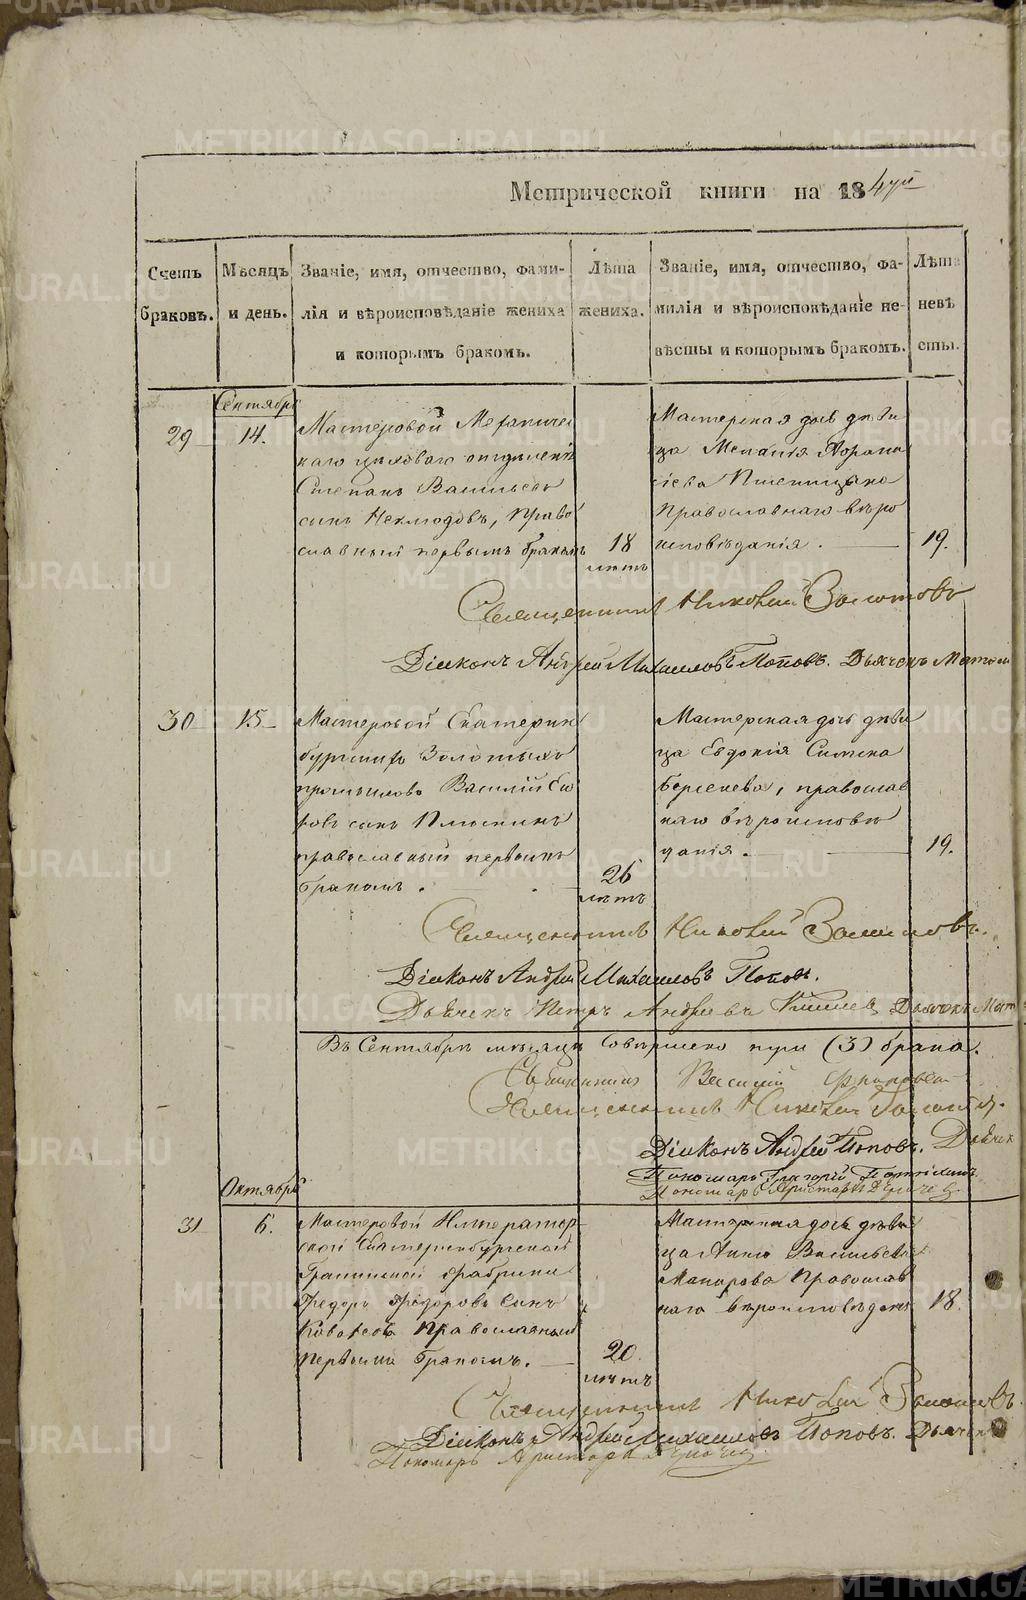 Метрической книги на 184
Счетъ браковъ.
Мѣсяцъ и день.
Званіе, имя, отчество, фами-
лія и вѣроисповѣданіе жениха
и которымъ бракомъ.
Лѣта жениха.
Званіе, имя, отчество, фа-
милія и вѣроисповѣданіе не-
вѣсты и которымъ бракомъ.
Лѣта невѣ сты.
Сентябрь
29
14.
Мастеровой Механичес
каго цеховаго отдѣленія
Степанъ Васильевъ
сынъ Неклюдовъ, Право
славный первымъ бракомъ
18
лѣтъ
Мастерская дочь дѣви
ца
Пшеницына
Православнаго вѣро
исповѣданія.
19.
Священникъ Николай
Діаконъ Андрей Михаиловъ Поповъ. Дьячекъ
30
15
Мастеровой Екатерин
бургскихъ Золотыхъ
промысловъ Василій
сынъ
православный первымъ
бракомъ.
26
лѣтъ
Мастерская дочь дѣви
ца Евдокія Симена
Берсенева, православ
наго вѣроисповѣ
данія.
19.
Священникъ Николай
Діаконъ Андрей Михаиловъ Поповъ.
Дьячекъ Петръ Андреевъ Дьячекъ
Въ Сентябрѣ мѣсяцѣ Совершено три (3) брака.
Священникъ Василій
Священникъ Николай
Діаконъ Андрей Поповъ. Дьячек
Пономарь Григорій
Пономарь Аристархъ
Октябрь
31
6.
Мастеровой Император
ской Екатеринбургской
Гранильной фабрики
Федоръ Федоровъ Сынъ
Православный
первымъ бракомъ.
20.
лѣтъ
Мастерская дочь дѣви
ца Анна Васильева
Макарова Православ
наго вѣроисповѣдані
18.
Священникъ Николай
Діаконъ Андрей Михаиловъ Поповъ. Дьячек
Пономарь Аристархъ
METRIKI.GASO-URAL.RU